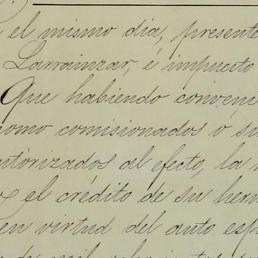 el mismo dia, presente
Larrainzar, é impuesto
Que habiendo conveni
como comisionados ó su
autorizados al efecto, la
y el crédito de su herm
en virtud del auto esp